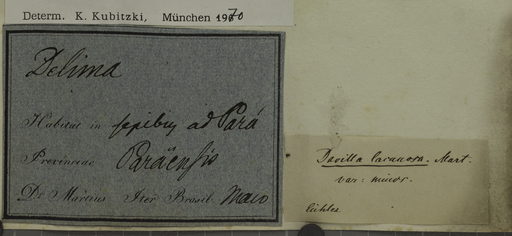 Determ. K. Kubitzki, München 1970
Delima
Habitat in sepibus ad Pará
Provinciae Paraënsis
Dr Martius Iter Brasil. Maio
Davilla lacunosa. Mart.
var: minor.
Eichler